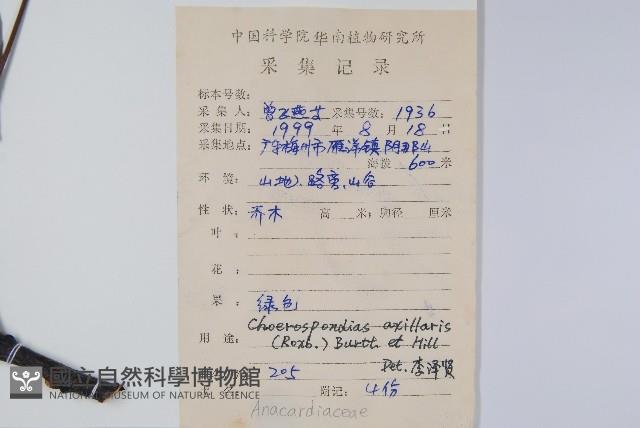 中国科学院华南植物研究所
采集记录
标本号数:
采集人: 曾飞燕 采集号数: 1936
采集日期: 1999 年 8 月 18 日
采集地点: 广东梅州市雁洋镇阴那山
海拨 600 米
环境: 山地、路旁、山谷
性状: 乔木 高 米; 胸径 厘米
叶:
花:
果: 绿色
Choerospondias axillaris
用途: (Roxb.) Burtt. et Hill
Det. 李泽贤
205 附记: 4份
國立自然科學博物館
NATIONAL MUSEUM OF NATURAL SCIENCE
Anacardiaceae